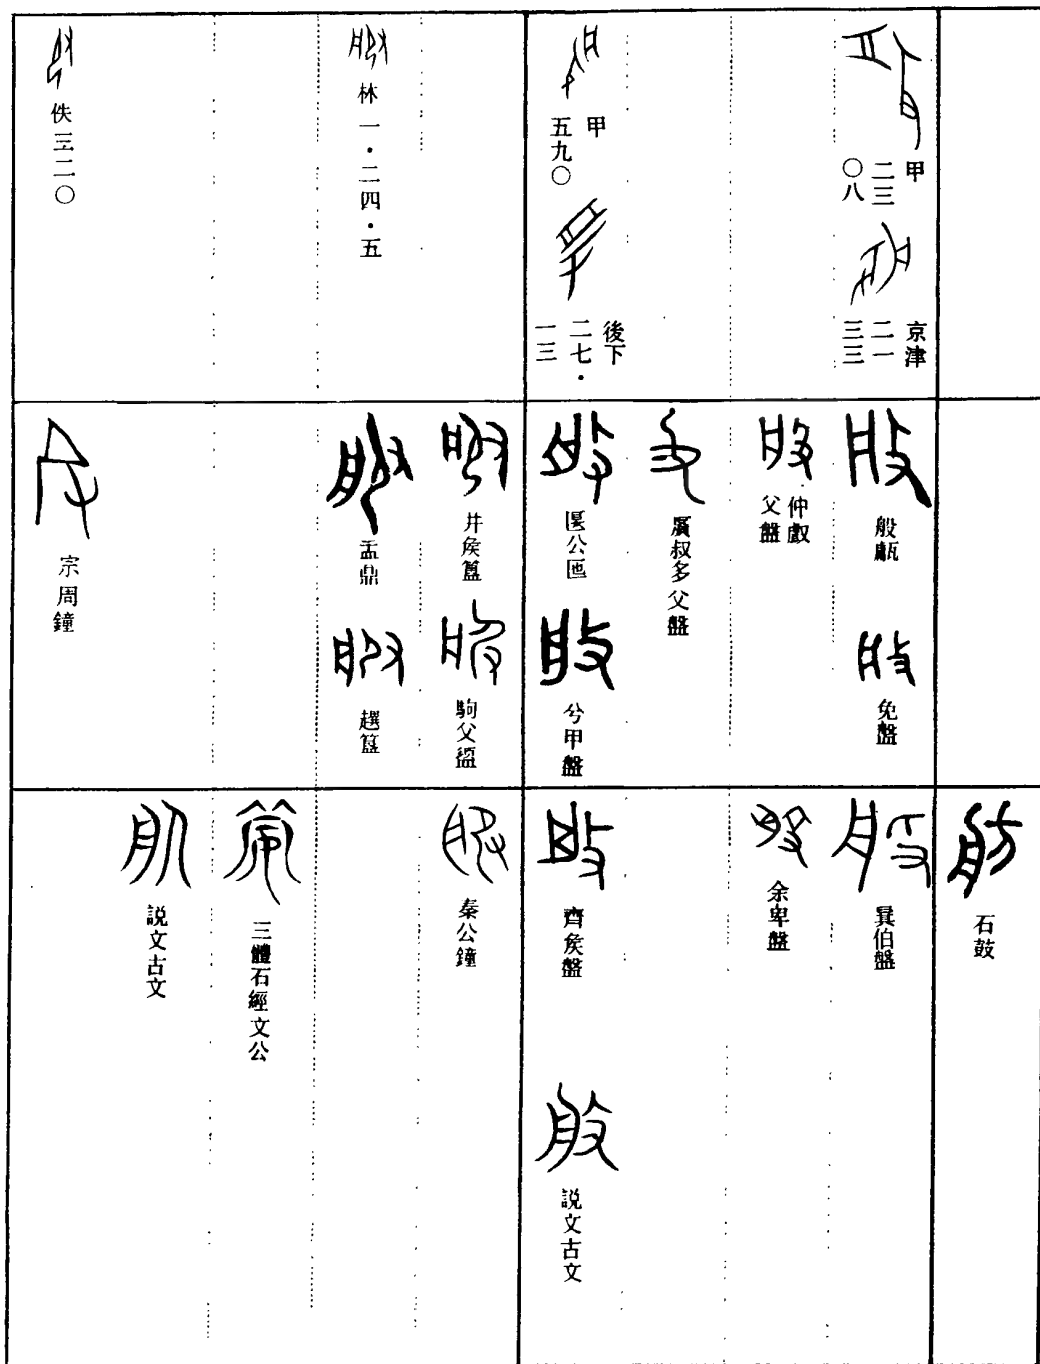 甲
二三
〇八
京津
二一
三三
甲
五九〇
後下
二七·
一三
林一·二四·五
佚三二〇
般甗
免盤
仲𠭯
父盤
叔多父盤
公匜
兮甲盤
井矦簋
駒父盨
盂鼎
趩簋
宗周鐘
石鼓
㠱伯盤
余卑盤
齊矦盤
説文古文
秦公鐘
三體石經文公
説文古文